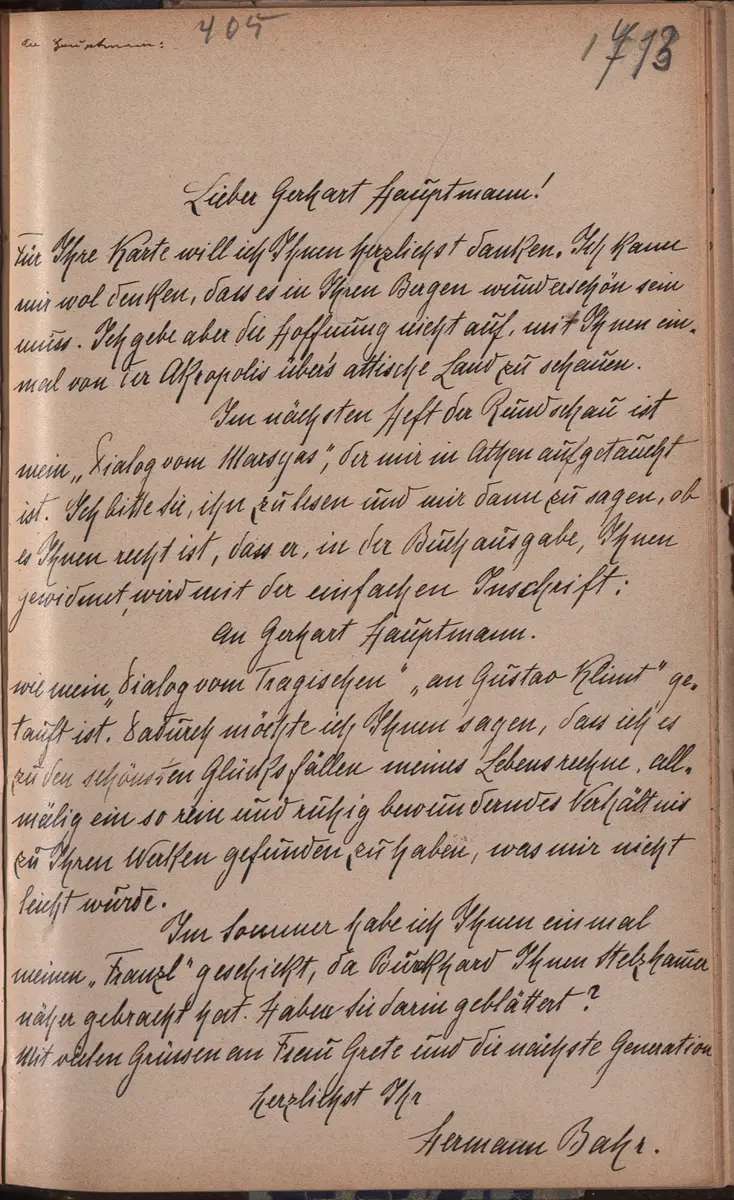 An Hauptmann:
405
Lieber Gerhart Hauptmann!
Für Ihre Karte will ich Ihnen herzlichst danken. Ich kann
mir wol denken, dass es in Ihren Bergen wunderschön sein
muss. Ich gebe aber die Hoffnung nicht auf, mit Ihnen ein-
mal von der Akropolis über's attische Land zu schauen.
Im nächsten Heft der Rundschau ist
mein „Dialog vom Marsyas", der mir in Athen aufgetaucht
ist. Ich bitte Sie, ihn zu lesen und mir dann zu sagen, ob
es Ihnen recht ist, dass er, in der Buchausgabe, Ihnen
gewidmet wird mit der einfachen Inschrift:
An Gerhart Hauptmann.
wie mein „Dialog vom Tragischen" „an Gustav Klimt" ge-
tauft ist. Dadurch möchte ich Ihnen sagen, dass ich es
zu den schönsten Glücksfällen meines Lebens rechne, all-
mälig ein so rein und ruhig bewunderndes Verhältnis
zu Ihren Werken gefunden zu haben, was mir nicht
leicht wurde.
Im Sommer habe ich Ihnen einmal
meinen „Franzl" geschickt, da Burkhard Ihnen Stelzhamer
näher gebracht hat. Haben Sie darin geblättert?
Mit vielen Grüssen an Frau Grete und die nächste Generation
herzlichst Ihr
Hermann Bahr.